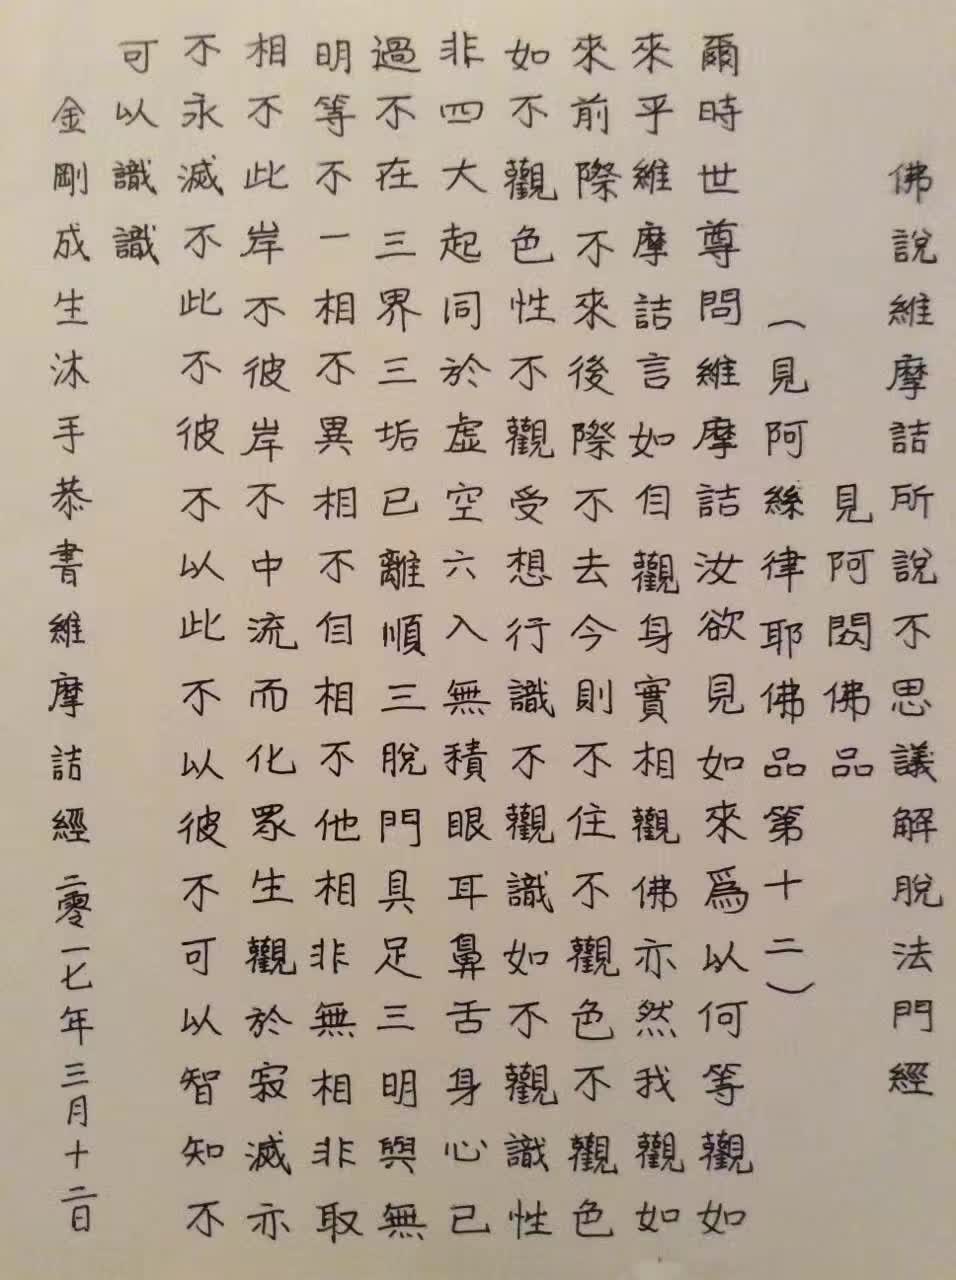 佛說維摩詰所說不思議解脫法門經
見阿閦佛品
（見阿絲律耶佛品第十二）
爾時世尊問維摩詰汝欲見如來為以何等觀如
來乎維摩詰言如自觀身實相觀佛亦然我觀如
來前際不來後際不去今則不住不觀色不觀色
如不觀色性不觀受想行識不觀識如不觀識性
非四大起同於虛空六入無積眼耳鼻舌身心已
過不在三界三垢已離順三脫門具足三明與無
明等不一相不異相不自相不他相非無相非取
相不此岸不彼岸不中流而化眾生觀於寂滅亦
不永滅不此不彼不以此不以彼不可以智知不
可以識識
金剛成生沐手恭書維摩詰經二零一七年三月十二日